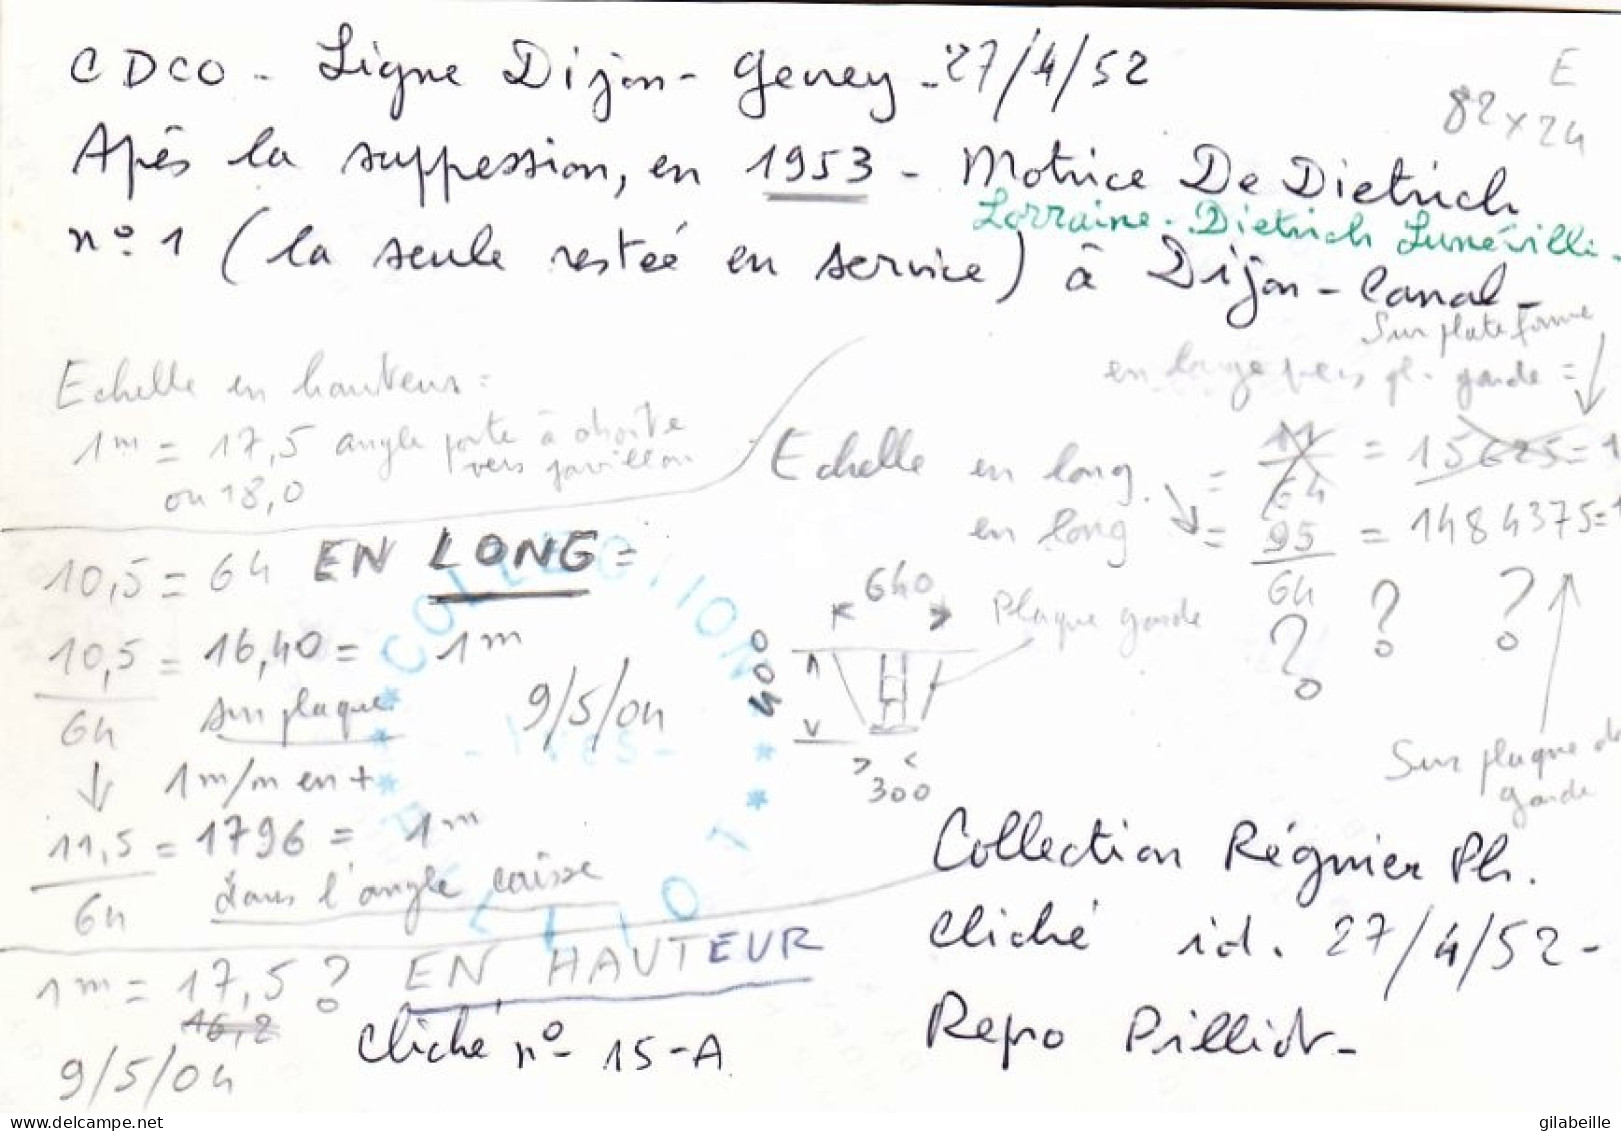 CDCO - Ligne Dijon - Gevrey - 27/4/52
E
82 x 24
Apès la suppession, en 1953 - Motrice De Dietrich
Lorraine - Dietrich Lunéville -
n° 1 (la seule restée en service) à Dijon - Canal -
Sur plateforme
en large vers pl. garde =
Echelle en hauteur :
1m = 17,5 angle porte à droite
vers pavillon
ou 18,0
Echelle en long = 11/64 = 15625 = 1
en long = 95/64 = 1484375 = 1
? ? ?
10,5 = 64 EN LONG =
10,5/64 = 16,40 = 1m
sur plaque
9/5/04
1 m/m en +
11,5/64 = 1796 = 1m
dans l'angle caisse
640
Plaque garde
400
300
Sur plaque de
garde
COLLECTION
- YVES -
PILLIOT
Collection Régnier Ph.
Cliché id. 27/4/52 -
Repro Pilliot -
1m = 17,5 ? EN HAUTEUR
16,2
Cliché n° 15-A
9/5/04
gilabeille